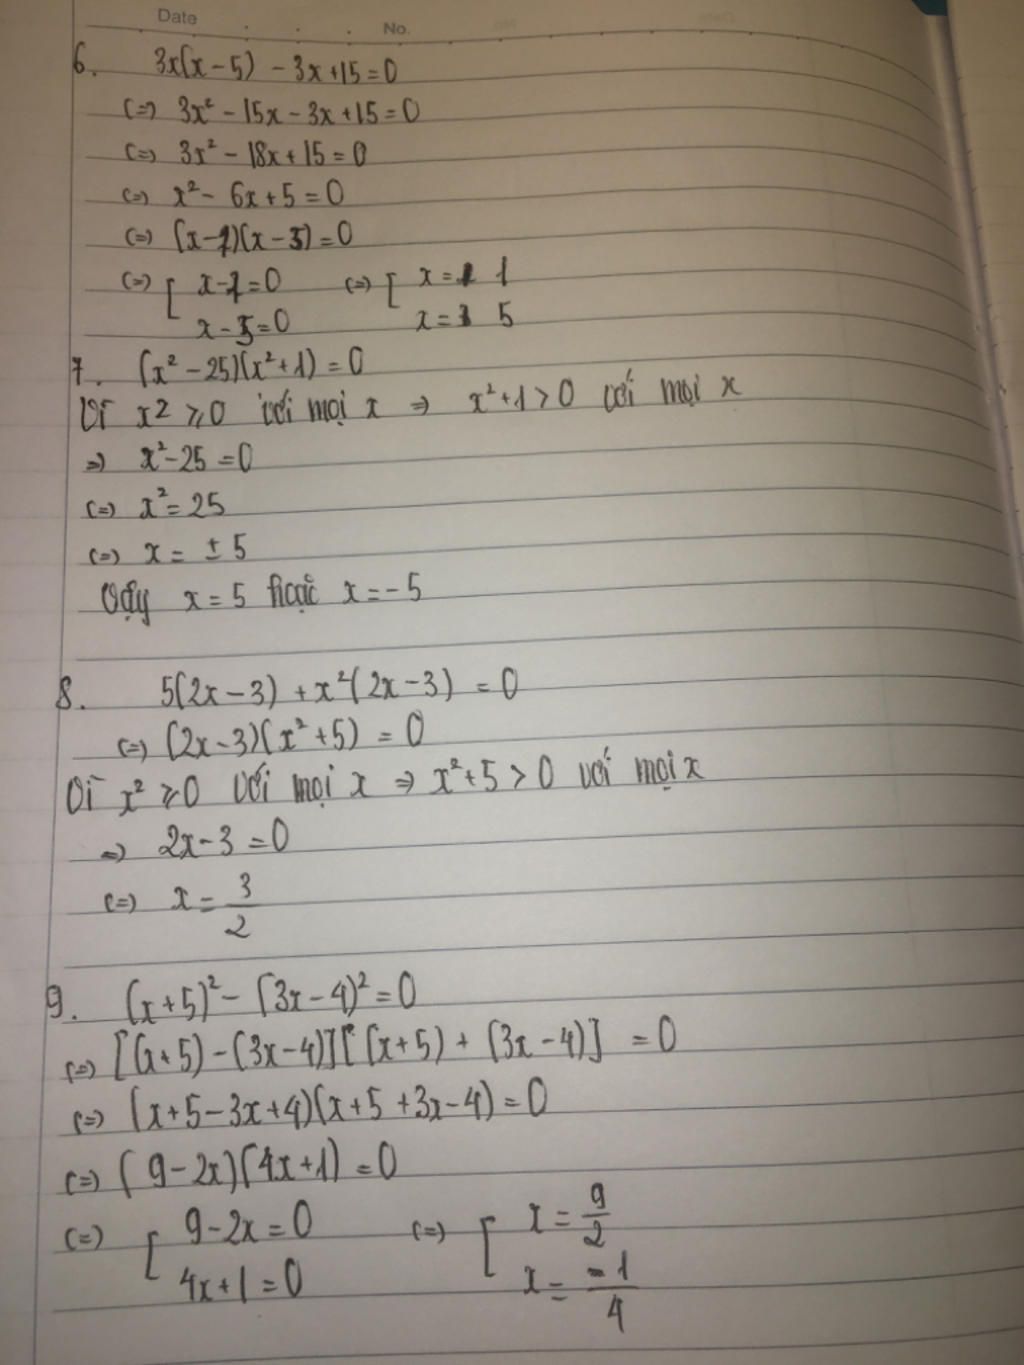 Date No.
6. 3x(x-5) - 3x+15=0
(=) 3x² - 15x - 3x + 15 = 0
(=) 3x² - 18x + 15 = 0
(=) x² - 6x + 5 = 0
(=) (x-1)(x-5) = 0
(=) [ x-1=0 (=) [ x = 1
x-5=0 x = 5
7. (x² - 25)(x²+1) = 0
Vì x2 ≥ 0 với mọi x => x²+1 > 0 với mọi x
=> x²-25 = 0
(=) x² = 25
(=) x = ± 5
Vậy x = 5 hoặc x = -5
8. 5(2x-3) + x²(2x-3) = 0
(=) (2x-3)(x²+5) = 0
Vì x² ≥ 0 với mọi x => x²+5 > 0 với mọi x
=> 2x-3 = 0
(=) x = 3/2
9. (x+5)² - (3x-4)² = 0
(=) [(x+5) - (3x-4)][(x+5) + (3x-4)] = 0
(=) (x+5-3x+4)(x+5+3x-4) = 0
(=) (9-2x)(4x+1) = 0
(=) [ 9-2x=0 (=) [ x = 9/2
4x+1=0 x = -1/4